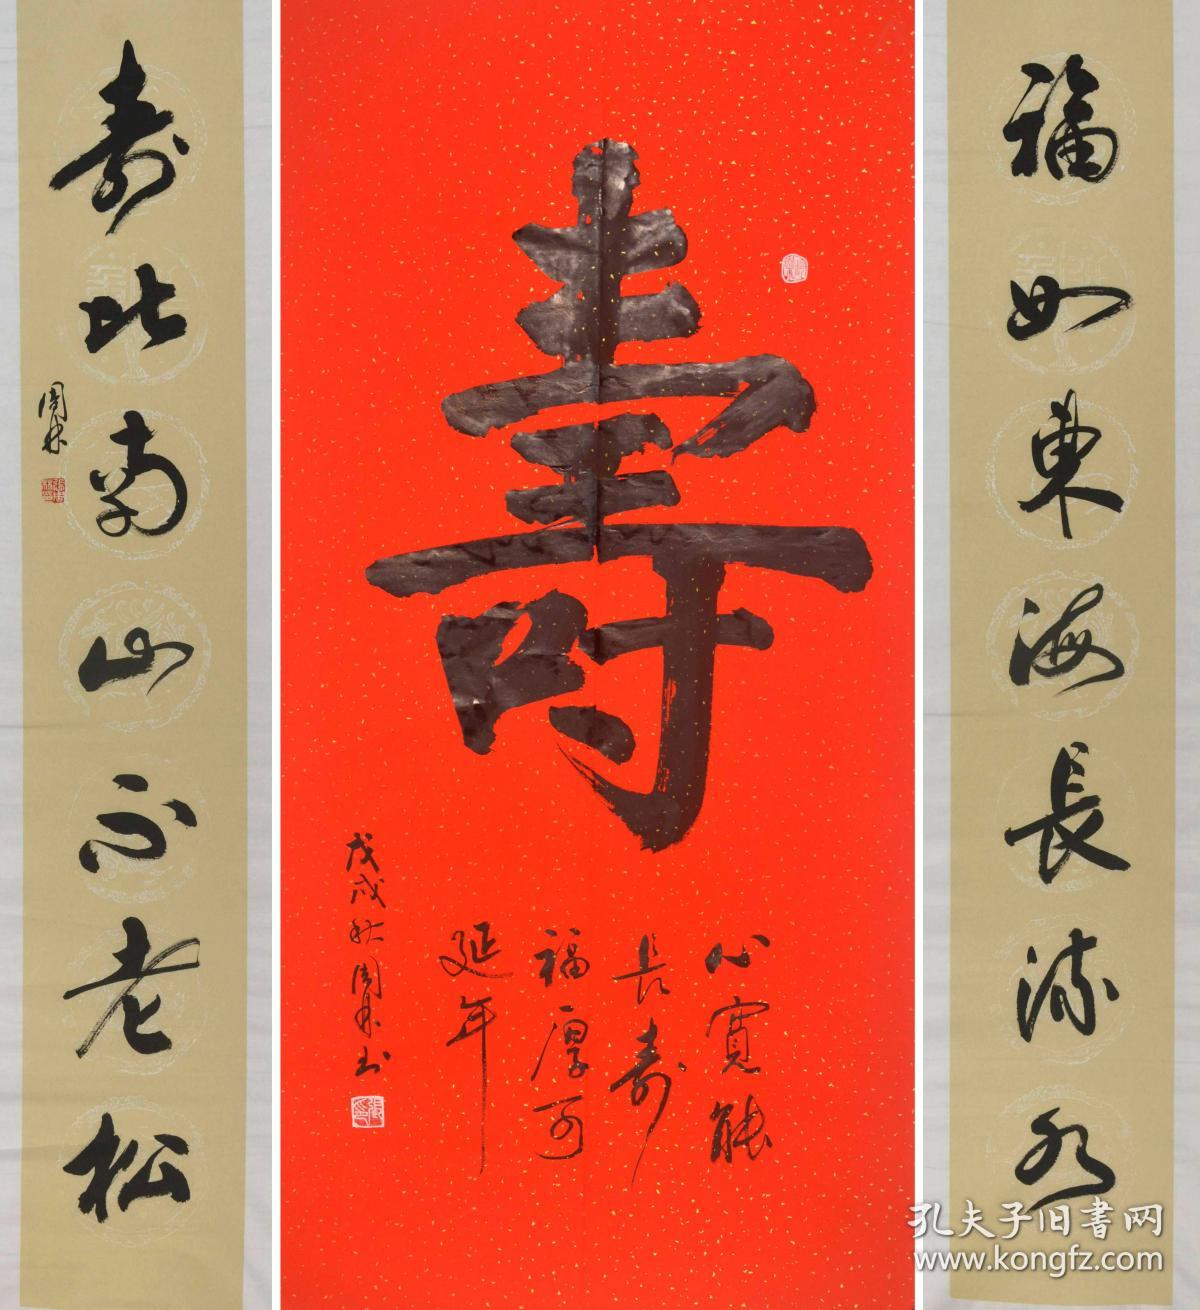 福如東海長流水
壽
心寬能
長壽
福厚可
延年
戊戌秋周林书
壽比南山不老松
周林
孔夫子旧书网
www.kongfz.com